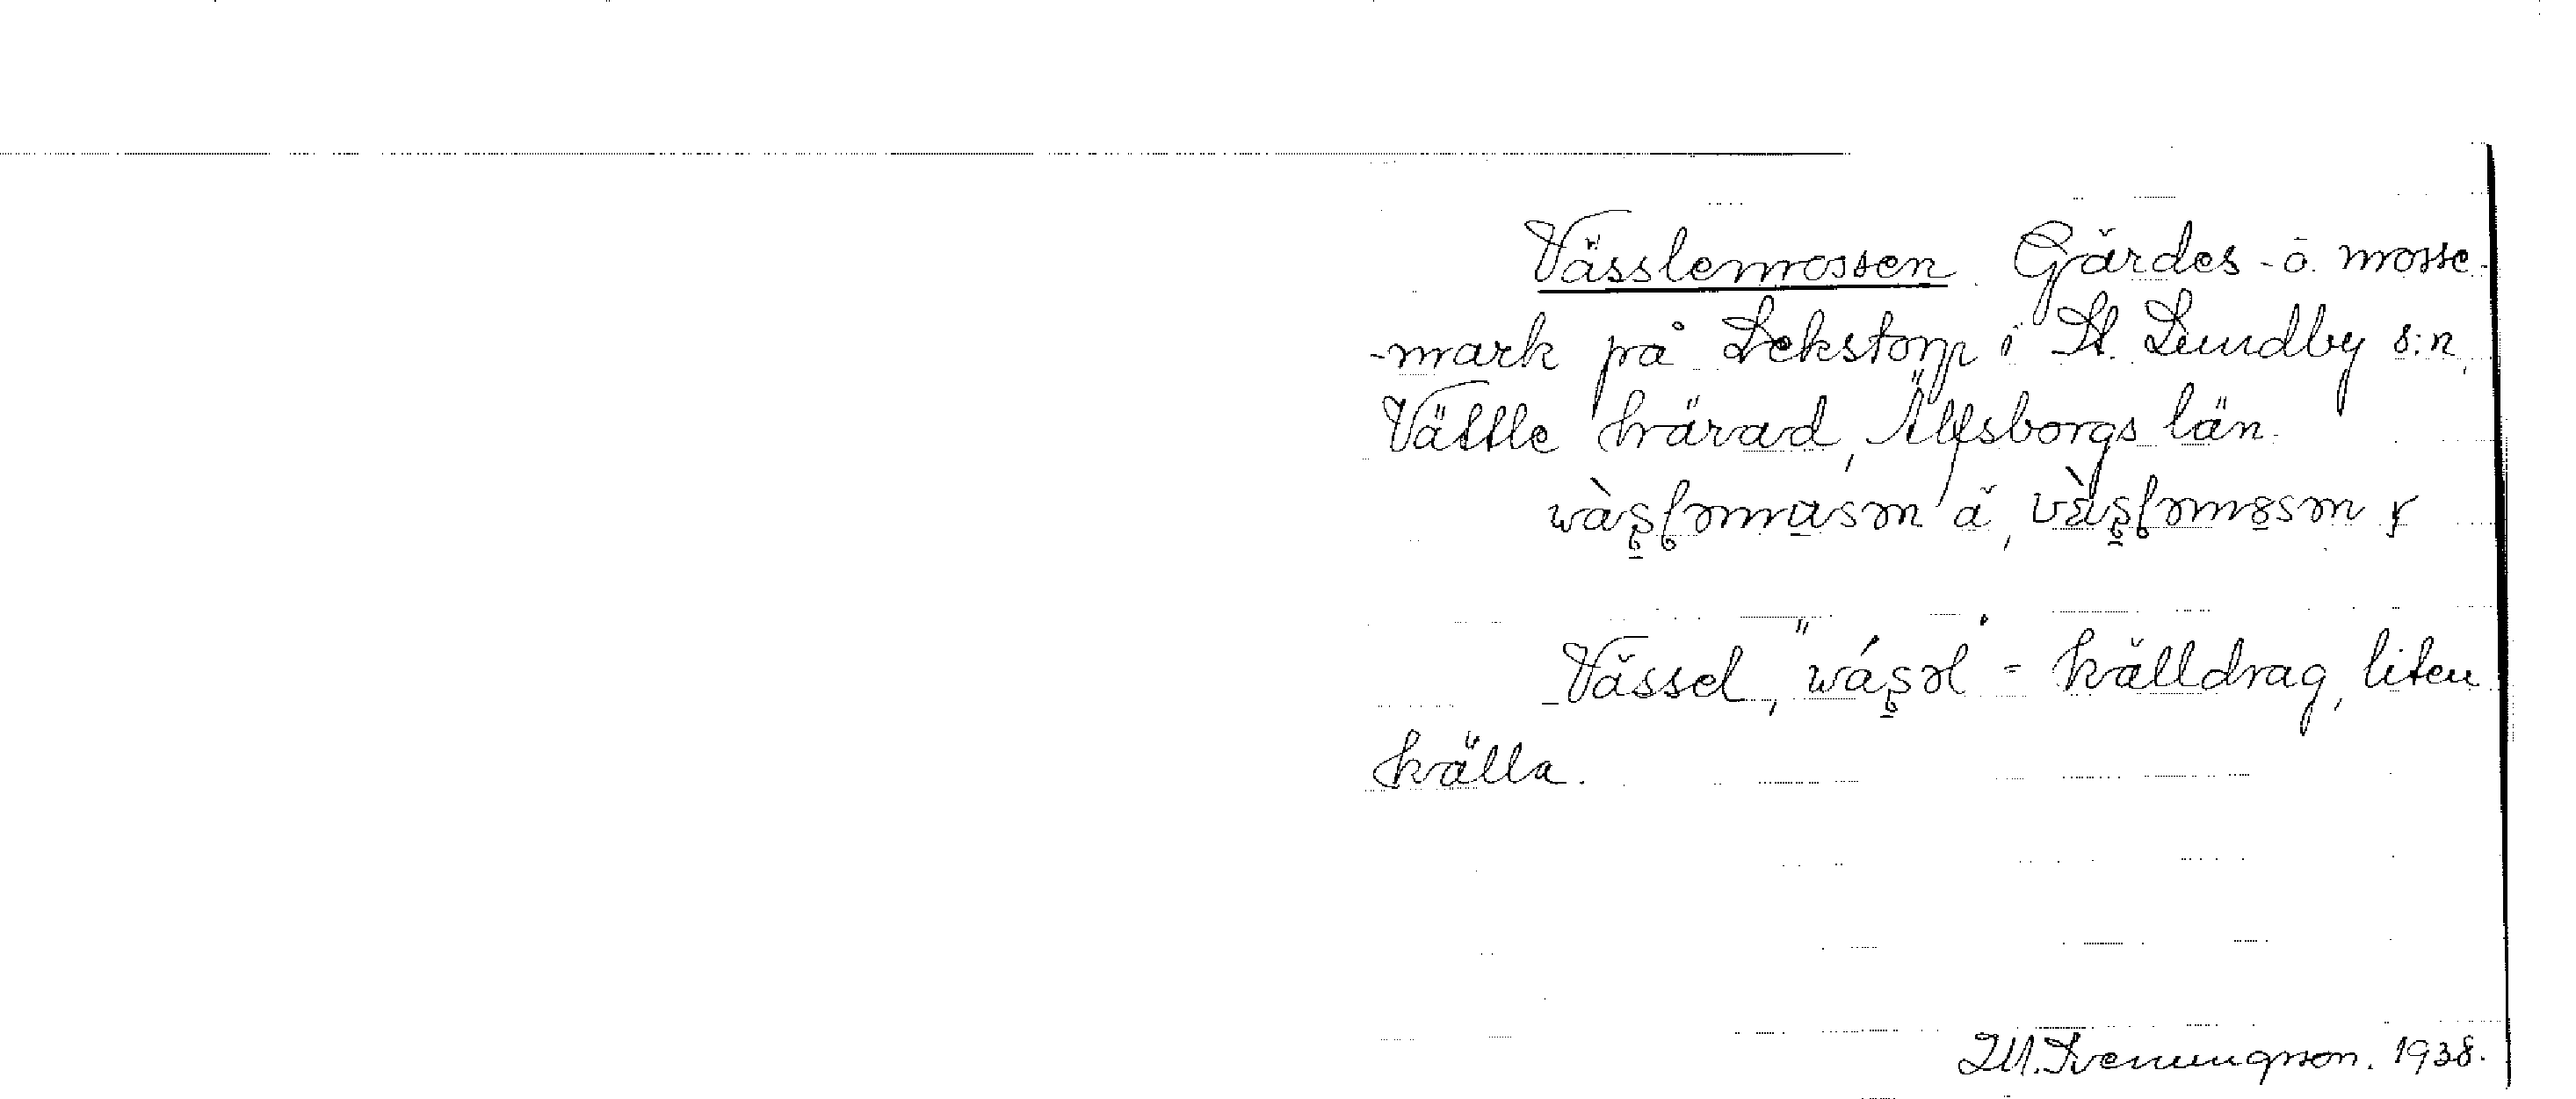 Vässlemossen. Gärdes- o. mosse-
-mark på Lekstorp i St. Lundby s:n,
Vättle härad, Älfsborgs län.
Vässel, " = källdrag, liten
källa.
M. Svenungsson. 1938.